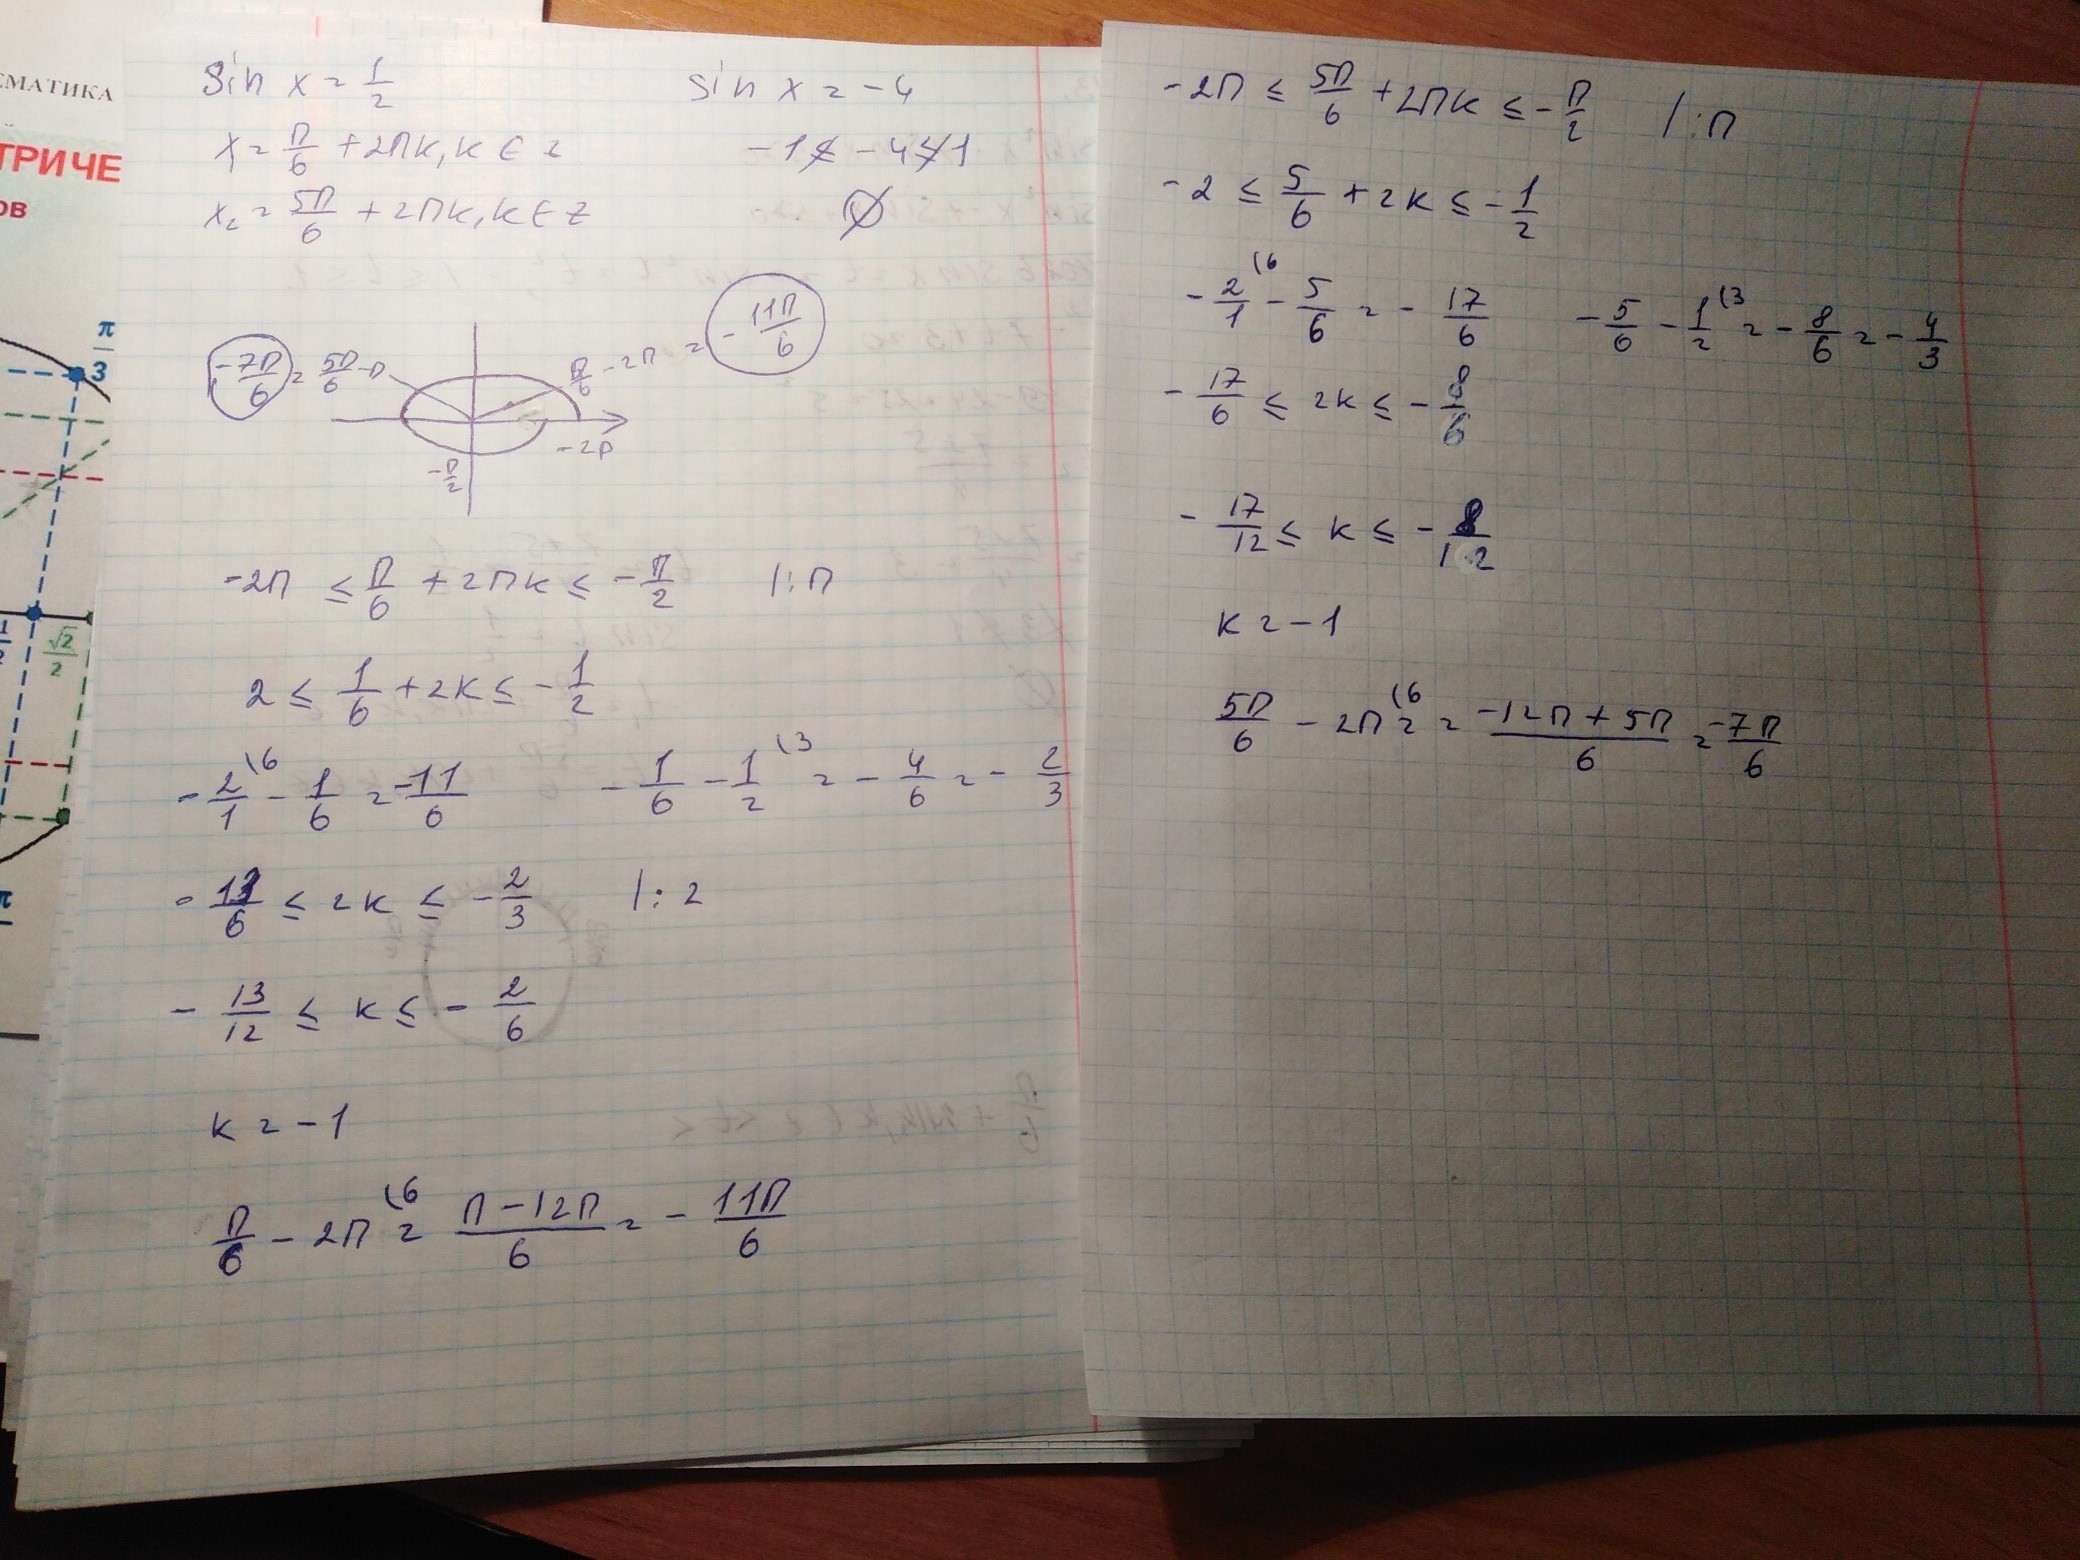 ЕМАТИКА
ТРИЧЕ
ов
π/3
√2/2
sin x = 1/2
x₁ = П/6 + 2Пk, k ∈ z
x₂ = 5П/6 + 2Пk, k ∈ Z
sin x = -4
-1 ≰ -4 ≰ 1
∅
-7П/6 = 5П/6 - П
П/6 - 2П = -11П/6
-2П
-П/2
-2П ≤ П/6 + 2Пk ≤ -П/2 |:П
2 ≤ 1/6 + 2k ≤ -1/2
-2/1 (6 - 1/6 = -11/6
-1/6 - 1/2 (3 = -4/6 = -2/3
-13/6 ≤ 2k ≤ -2/3 |:2
-13/12 ≤ k ≤ -2/6
k = -1
П/6 - 2П (6 = П-12П/6 = -11П/6
-2П ≤ 5П/6 + 2Пk ≤ -П/2 |:П
-2 ≤ 5/6 + 2k ≤ -1/2
-2/1 (6 - 5/6 = -17/6
-5/6 - 1/2 (3 = -8/6 = -4/3
-17/6 ≤ 2k ≤ -8/6
-17/12 ≤ k ≤ -8/12
k = -1
5П/6 - 2П (6 = = -12П+5П/6 = -7П/6